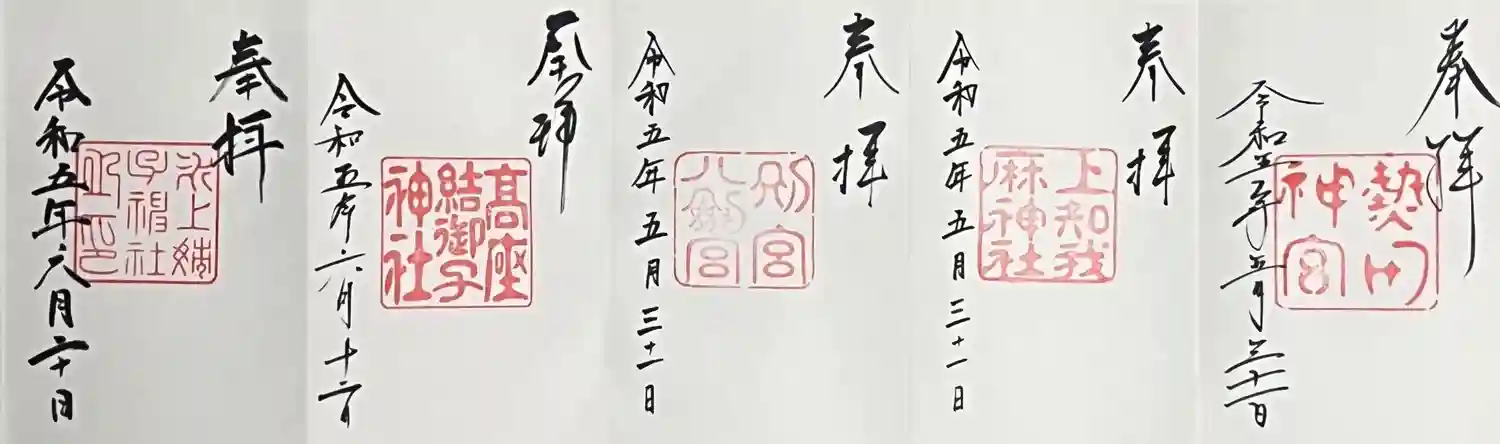 奉拝
熱田
神宮
令和五年五月三十一日
奉拝
上知我
麻神社
令和五年五月三十一日
奉拝
別宮
八剣宮
令和五年五月三十一日
奉拝
髙座
結御子
神社
令和五年六月十
奉拝
氷上姉
子神社
之印
令和五年六月二十日